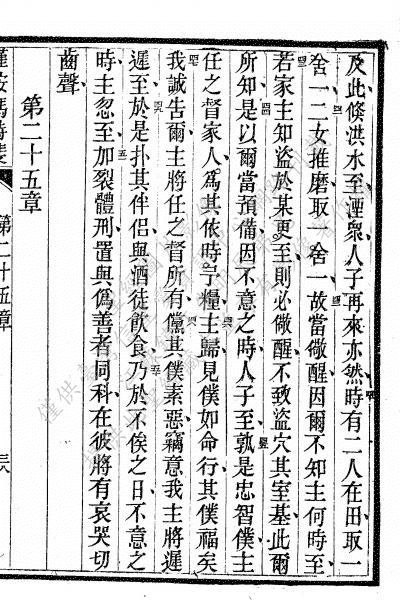 及此倏洪水至湮眾人子再來亦然時有二人在田取一
舍一二女推磨取一舍一故當儆醒因爾不知主何時至
若家主知盜於某更至則必儆醒不致盜穴其室基此爾
所知是以爾當預備因不意之時人子至孰是忠智僕主
任之督家人爲其依時予糧主歸見僕如命行其僕福矣
我誠告爾主將任之督所有儻其僕素惡竊意我主將遲
遲至於是扑其伴侶與酒徒飲食乃於不俟之日不意之
時主忽至加裂體刑置與僞善者同科在彼將有哀哭切
齒聲
第二十五章
第二十五章